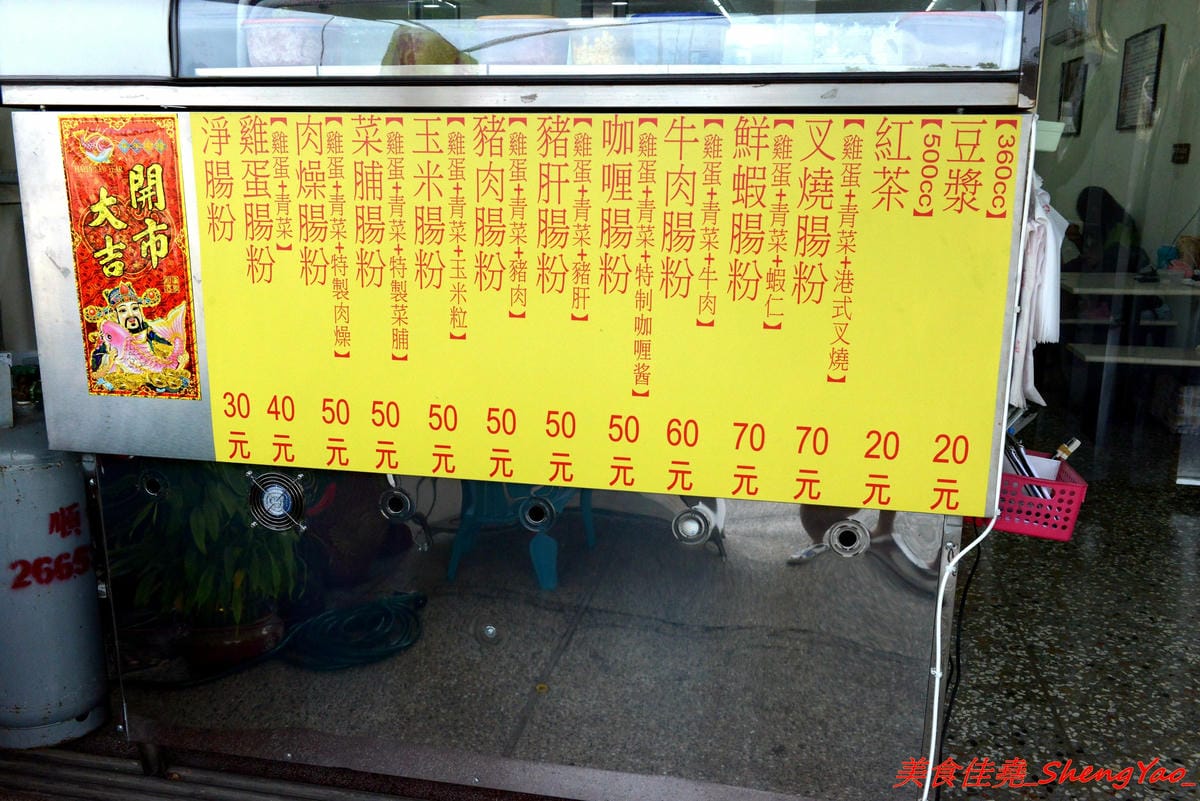 開市
大吉
淨腸粉
30元
雞蛋腸粉
【雞蛋+青菜】
40元
肉燥腸粉
【雞蛋+青菜+特製肉燥】
50元
菜脯腸粉
【雞蛋+青菜+特製菜脯】
50元
玉米腸粉
【雞蛋+青菜+玉米粒】
50元
豬肉腸粉
【雞蛋+青菜+豬肉】
50元
豬肝腸粉
【雞蛋+青菜+豬肝】
50元
咖喱腸粉
【雞蛋+青菜+特制咖喱酱】
50元
牛肉腸粉
【雞蛋+青菜+牛肉】
60元
鮮蝦腸粉
【雞蛋+青菜+蝦仁】
70元
叉燒腸粉
【雞蛋+青菜+港式叉燒】
70元
紅茶
【500cc】
20元
豆漿
【360cc】
20元
順
2665
美食佳堯_ShengYao_